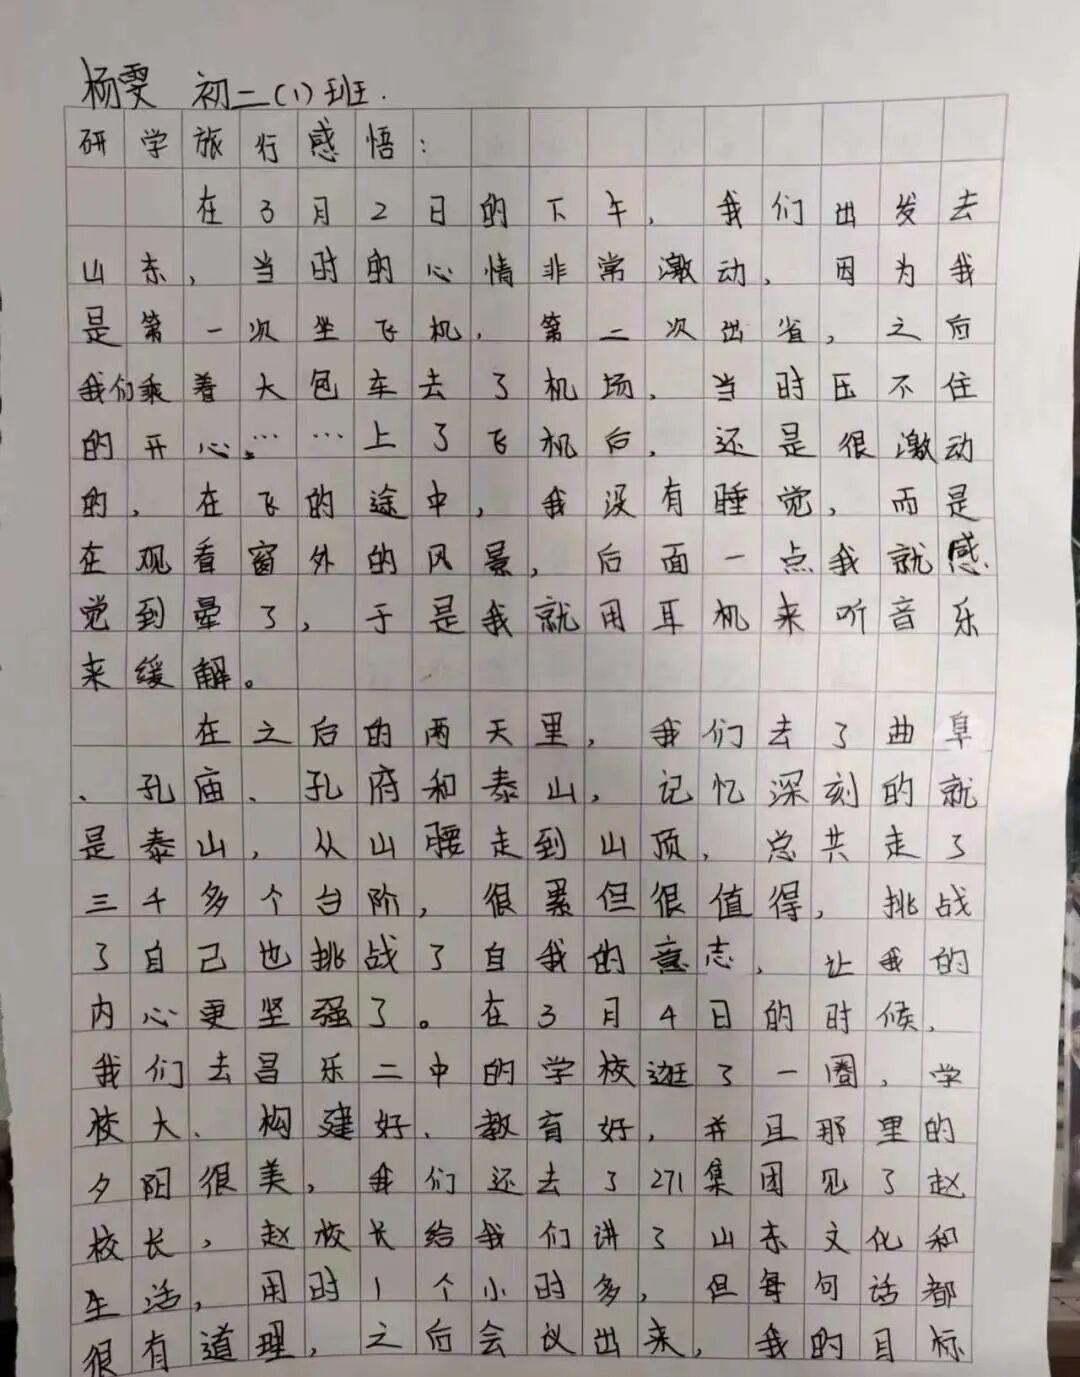 杨雯 初二(1)班.
研学旅行感悟：
在3月2日的下午，我们出发去
山东，当时的心情非常激动，因为我
是第一次坐飞机，第二次出省，之后
我们乘着大包车去了机场，当时压不住
的开心……上了飞机后，还是很激动
的，在飞的途中，我没有睡觉，而是
在观看窗外的风景，后面一点我就感
觉到晕了，于是我就用耳机来听音乐
来缓解。
在之后的两天里，我们去了曲阜
、孔庙、孔府和泰山，记忆深刻的就
是泰山，从山腰走到山顶，总共走了
三千多个台阶，很累但很值得，挑战
了自己也挑战了自我的意志，让我的
内心更坚强了。在3月4日的时候，
我们去昌乐二中的学校逛了一圈，学
校大、构建好、教育好，并且那里的
夕阳很美，我们还去了271集团见了赵
校长，赵校长给我们讲了山东文化和
生活，用时1个小时多，但每句话都
很有道理，之后会议出来，我的目标